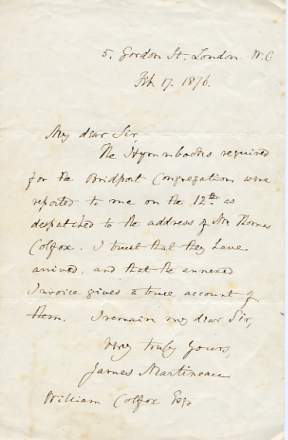 5. Gordon St. London W.C
Feb 17. 1876.
My dear Sir
The Hymnbooks required
for the Bridport Congregation, were
reported to me on the 12th as
despatched to the address of Mr Thomas
Colfox. I trust that they have
arrived, and that the annexed
Invoice gives a true account of
them. I remain my dear Sir,
Very truly Yours,
James Martineau
William Colfox Esqr